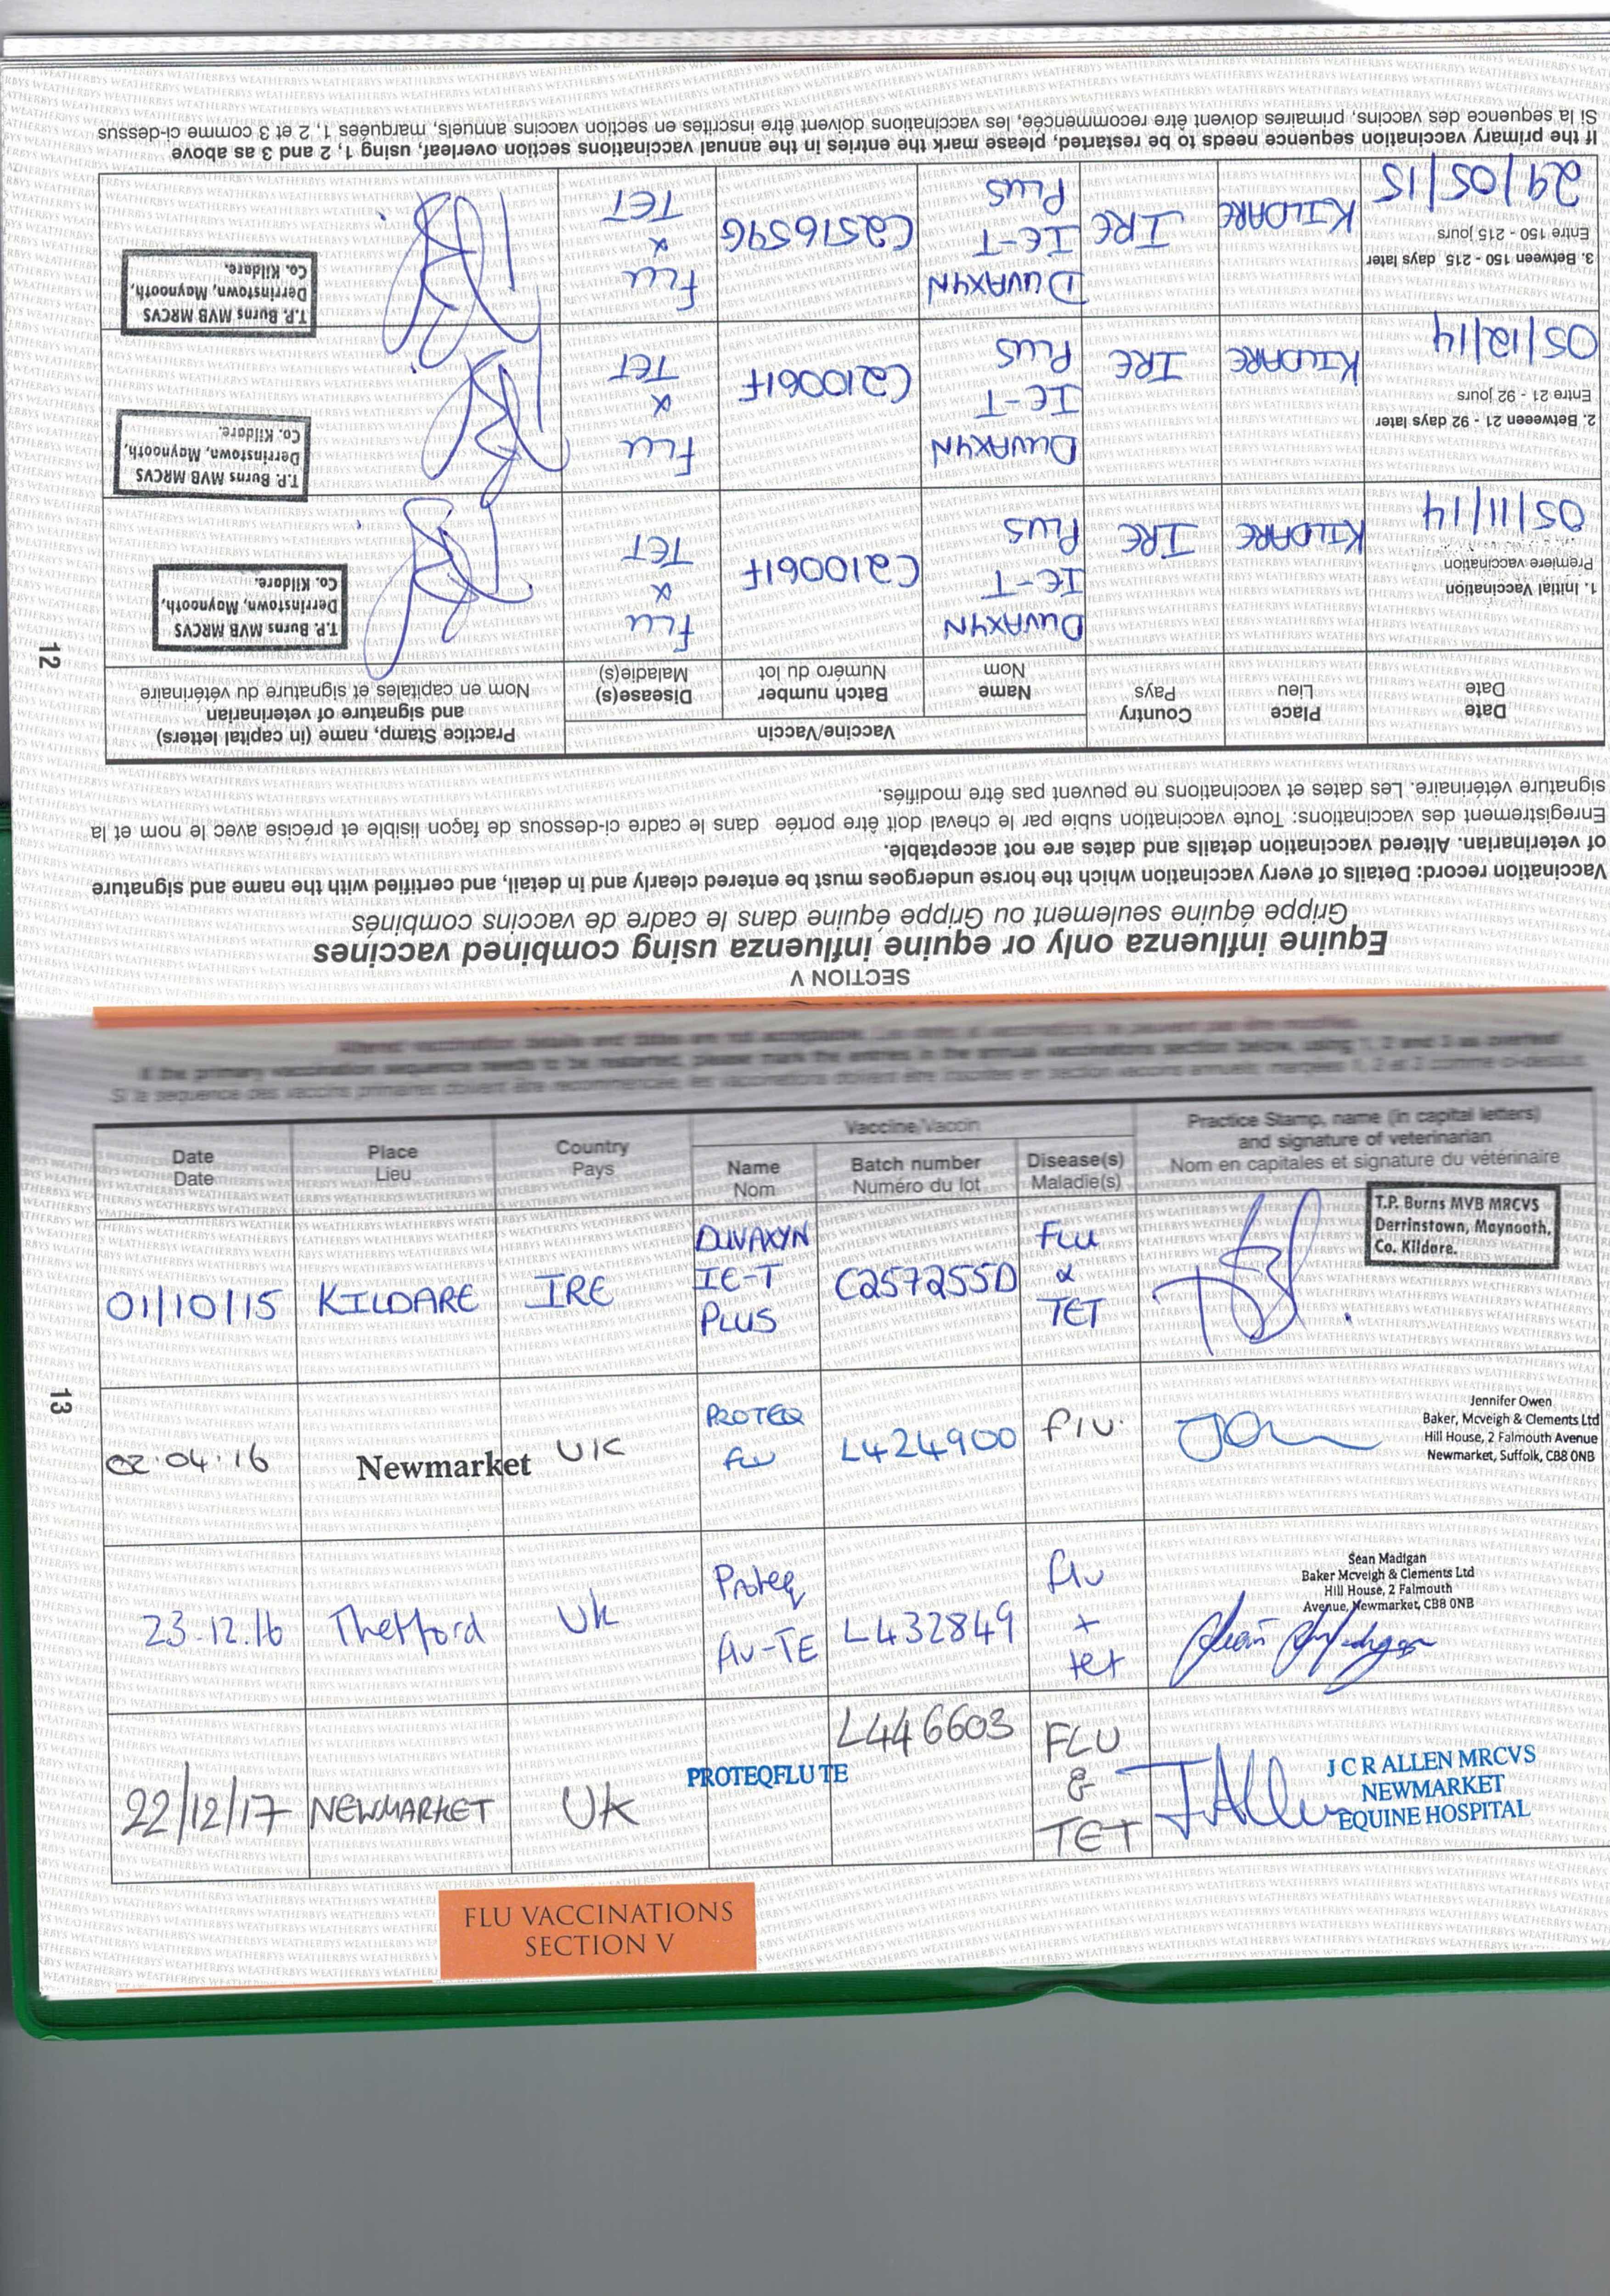 SECTION V
Equine influenza only or equine influenza using combined vaccines
Grippe équine seulement ou Grippe équine dans le cadre de vaccins combinés
Vaccination record: Details of every vaccination which the horse undergoes must be entered clearly and in detail, and certified with the name and signature
of veterinarian. Altered vaccination details and dates are not acceptable.
Enregistrement des vaccinations: Toute vaccination subie par le cheval doit être portée dans le cadre ci-dessous de façon lisible et précise avec le nom et la
signature vétérinaire. Les dates et vaccinations ne peuvent pas être modifiés.
Date
Date
Place
Lieu
Country
Pays
Vaccine/Vaccin
Name
Nom
Batch number
Numéro du lot
Disease(s)
Maladie(s)
Practice Stamp, name (in capital letters)
and signature of veterinarian
Nom en capitales et signature du vétérinaire
1. Initial Vaccination
Première vaccination
05/11/14
KILDARE
IRE
DUVAXYN
IE-T
PLUS
C210061F
FLU
&
TET
T.P. Burns MVB MRCVS
Derrinstown, Maynooth,
Co. Kildare.
2. Betweeen 21 - 92 days later
Entre 21 - 92 jours
05/12/14
KILDARE
IRE
DUVAXYN
IE-T
PLUS
C210061F
FLU
&
TET
T.P. Burns MVB MRCVS
Derrinstown, Maynooth,
Co. Kildare.
3. Between 150 - 215 days later
Entre 150 - 215 jours
29/05/15
KILDARE
IRE
DUVAXYN
IE-T
PLUS
C251659G
FLU
&
TET
T.P. Burns MVB MRCVS
Derrinstown, Maynooth,
Co. Kildare.
If the primary vaccination sequence needs to be restarted, please mark the entries in the annual vaccinations section overleaf, using 1, 2 and 3 as above
Si la sequence des vaccins, primaires doivent être recommencée, les vaccinations doivent être inscrites en section vaccins annuels, marquées 1, 2 et 3 comme ci-dessus
12
If the primary vaccination sequence needs to be restarted, please mark the entries in the annual vaccinations section below, using 1, 2 and 3 as overleaf
Date
Date
Place
Lieu
Country
Pays
Vaccine/Vaccin
Name
Nom
Batch number
Numéro du lot
Disease(s)
Maladie(s)
Practice Stamp, name (in capital letters)
and signature of veterinarian
Nom en capitales et signature du vétérinaire
01/10/15
KILDARE
IRE
DUVAXYN
IE-T
PLUS
C257255D
FLU
&
TET
T.P. Burns MVB MRCVS
Derrinstown, Maynooth,
Co. Kildare.
02.04.16
Newmarket
UK
PROTEQ
flu
L424900
flu.
Jennifer Owen
Baker, Mcveigh & Clements Ltd
Hill House, 2 Falmouth Avenue
Newmarket, Suffolk, CB8 0NB
23.12.16
Thetford
Uk
Proteq
flu-TE
L432849
flu
+
tet
Sean Madigan
Baker Mcveigh & Clements Ltd
Hill House, 2 Falmouth
Avenue, Newmarket, CB8 0NB
22/12/17
NEWMARKET
UK
PROTEQFLU TE
L446603
FLU
&
TET
J Allen
J C R ALLEN MRCVS
NEWMARKET
EQUINE HOSPITAL
13
FLU VACCINATIONS
SECTION V